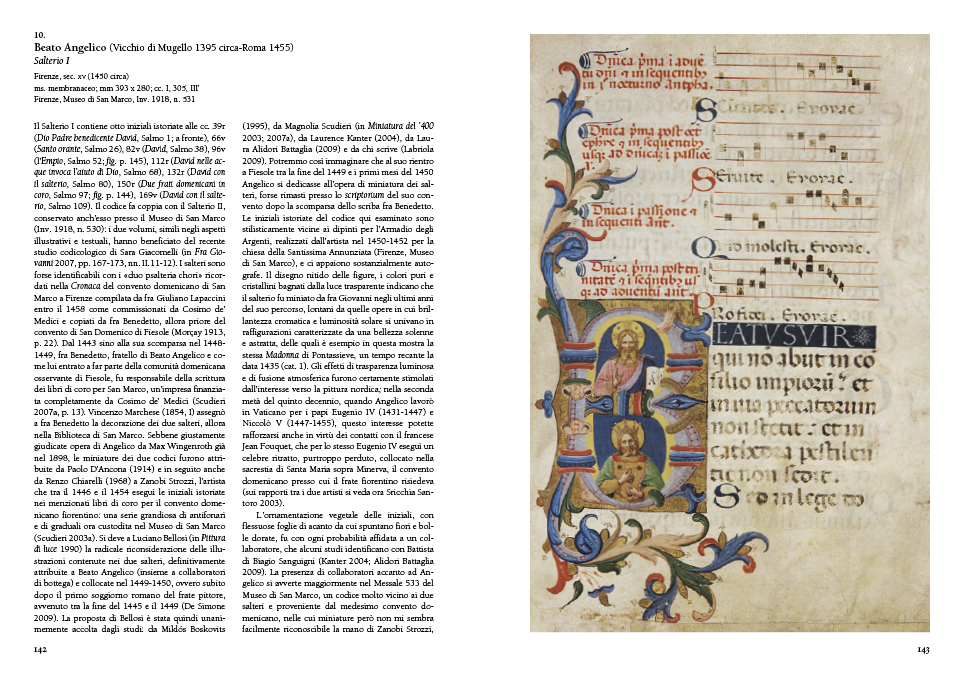 10.
Beato Angelico (Vicchio di Mugello 1395 circa-Roma 1455)
Salterio I
Firenze, sec. XV (1450 circa)
ms. membranaceo; mm 393 x 280; cc. I, 305, III'
Firenze, Museo di San Marco, Inv. 1918, n. 531
Il Salterio I contiene otto iniziali istoriate alle cc. 39r
(Dio Padre benedicente David, Salmo 1; a fronte), 66v
(Santo orante, Salmo 26), 82v (David, Salmo 38), 96v
(l'Empio, Salmo 52; fig. p. 145), 112r (David nelle ac-
que invoca l'aiuto di Dio, Salmo 68), 132r (David con
il salterio, Salmo 80), 150r (Due frati domenicani in
coro, Salmo 97; fig. p. 144), 169v (David con il salte-
rio, Salmo 109). Il codice fa coppia con il Salterio II,
conservato anch'esso presso il Museo di San Marco
(Inv. 1918, n. 530): i due volumi, simili negli aspetti
illustrativi e testuali, hanno beneficiato del recente
studio codicologico di Sara Giacomelli (in Fra Gio-
vanni 2007, pp. 167-173, nn. II.11-12). I salteri sono
forse identificabili con i «duo psalteria chori» ricor-
dati nella Cronaca del convento domenicano di San
Marco a Firenze compilata da fra Giuliano Lapaccini
entro il 1458 come commissionati da Cosimo de'
Medici e copiati da fra Benedetto, allora priore del
convento di San Domenico di Fiesole (Morçay 1913,
p. 22). Dal 1443 sino alla sua scomparsa nel 1448-
1449, fra Benedetto, fratello di Beato Angelico e co-
me lui entrato a far parte della comunità domenicana
osservante di Fiesole, fu responsabile della scrittura
dei libri di coro per San Marco, un'impresa finanzia-
ta completamente da Cosimo de' Medici (Scudieri
2007a, p. 13). Vincenzo Marchese (1854, I) assegnò
a fra Benedetto la decorazione dei due salteri, allora
nella Biblioteca di San Marco. Sebbene giustamente
giudicate opera di Angelico da Max Wingenroth già
nel 1898, le miniature dei due codici furono attri-
buite da Paolo D'Ancona (1914) e in seguito anche
da Renzo Chiarelli (1968) a Zanobi Strozzi, l'artista
che tra il 1446 e il 1454 eseguì le iniziali istoriate
nei menzionati libri di coro per il convento dome-
nicano fiorentino: una serie grandiosa di antifonari
e di graduali ora custodita nel Museo di San Marco
(Scudieri 2003a). Si deve a Luciano Bellosi (in Pittura
di luce 1990) la radicale riconsiderazione delle illu-
strazioni contenute nei due salteri, definitivamente
attribuite a Beato Angelico (insieme a collaboratori
di bottega) e collocate nel 1449-1450, ovvero subito
dopo il primo soggiorno romano del frate pittore,
avvenuto tra la fine del 1445 e il 1449 (De Simone
2009). La proposta di Bellosi è stata quindi unani-
memente accolta dagli studi: da Miklós Boskovits
(1995), da Magnolia Scudieri (in Miniatura del '400
2003; 2007a), da Laurence Kanter (2004), da Lau-
ra Alidori Battaglia (2009) e da chi scrive (Labriola
2009). Potremmo così immaginare che al suo rientro
a Fiesole tra la fine del 1449 e i primi mesi del 1450
Angelico si dedicasse all'opera di miniatura dei sal-
teri, forse rimasti presso lo scriptorium del suo con-
vento dopo la scomparsa dello scriba fra Benedetto.
Le iniziali istoriate del codice qui esaminato sono
stilisticamente vicine ai dipinti per l'Armadio degli
Argenti, realizzati dall'artista nel 1450-1452 per la
chiesa della Santissima Annunziata (Firenze, Museo
di San Marco), e ci appaiono sostanzialmente auto-
grafe. Il disegno nitido delle figure, i colori puri e
cristallini bagnati dalla luce trasparente indicano che
il salterio fu miniato da fra Giovanni negli ultimi anni
del suo percorso, lontani da quelle opere in cui bril-
lantezza cromatica e luminosità solare si univano in
raffigurazioni caratterizzate da una bellezza solenne
e astratta, delle quali è esempio in questa mostra la
stessa Madonna di Pontassieve, un tempo recante la
data 1435 (cat. 1). Gli effetti di trasparenza luminosa
e di fusione atmosferica furono certamente stimolati
dall'interesse verso la pittura nordica; nella seconda
metà del quinto decennio, quando Angelico lavorò
in Vaticano per i papi Eugenio IV (1431-1447) e
Niccolò V (1447-1455), questo interesse potette
rafforzarsi anche in virtù dei contatti con il francese
Jean Fouquet, che per lo stesso Eugenio IV eseguì un
celebre ritratto, purtroppo perduto, collocato nella
sacrestia di Santa Maria sopra Minerva, il convento
domenicano presso cui il frate fiorentino risiedeva
(sui rapporti tra i due artisti si veda ora Sricchia San-
toro 2003).
L'ornamentazione vegetale delle iniziali, con
flessuose foglie di acanto da cui spuntano fiori e bol-
le dorate, fu con ogni probabilità affidata a un col-
laboratore, che alcuni studi identificano con Battista
di Biagio Sanguigni (Kanter 2004; Alidori Battaglia
2009). La presenza di collaboratori accanto ad An-
gelico si avverte maggiormente nel Messale 533 del
Museo di San Marco, un codice molto vicino ai due
salteri e proveniente dal medesimo convento do-
menicano, nelle cui miniature però non mi sembra
facilmente riconoscibile la mano di Zanobi Strozzi,
142
EATVS VIR
qui nō abiit in cō
silio impiorū: et
in via peccatorum
non stetit: et in
cathedra pestilen
tie non sedit.
Sed in lege do
143